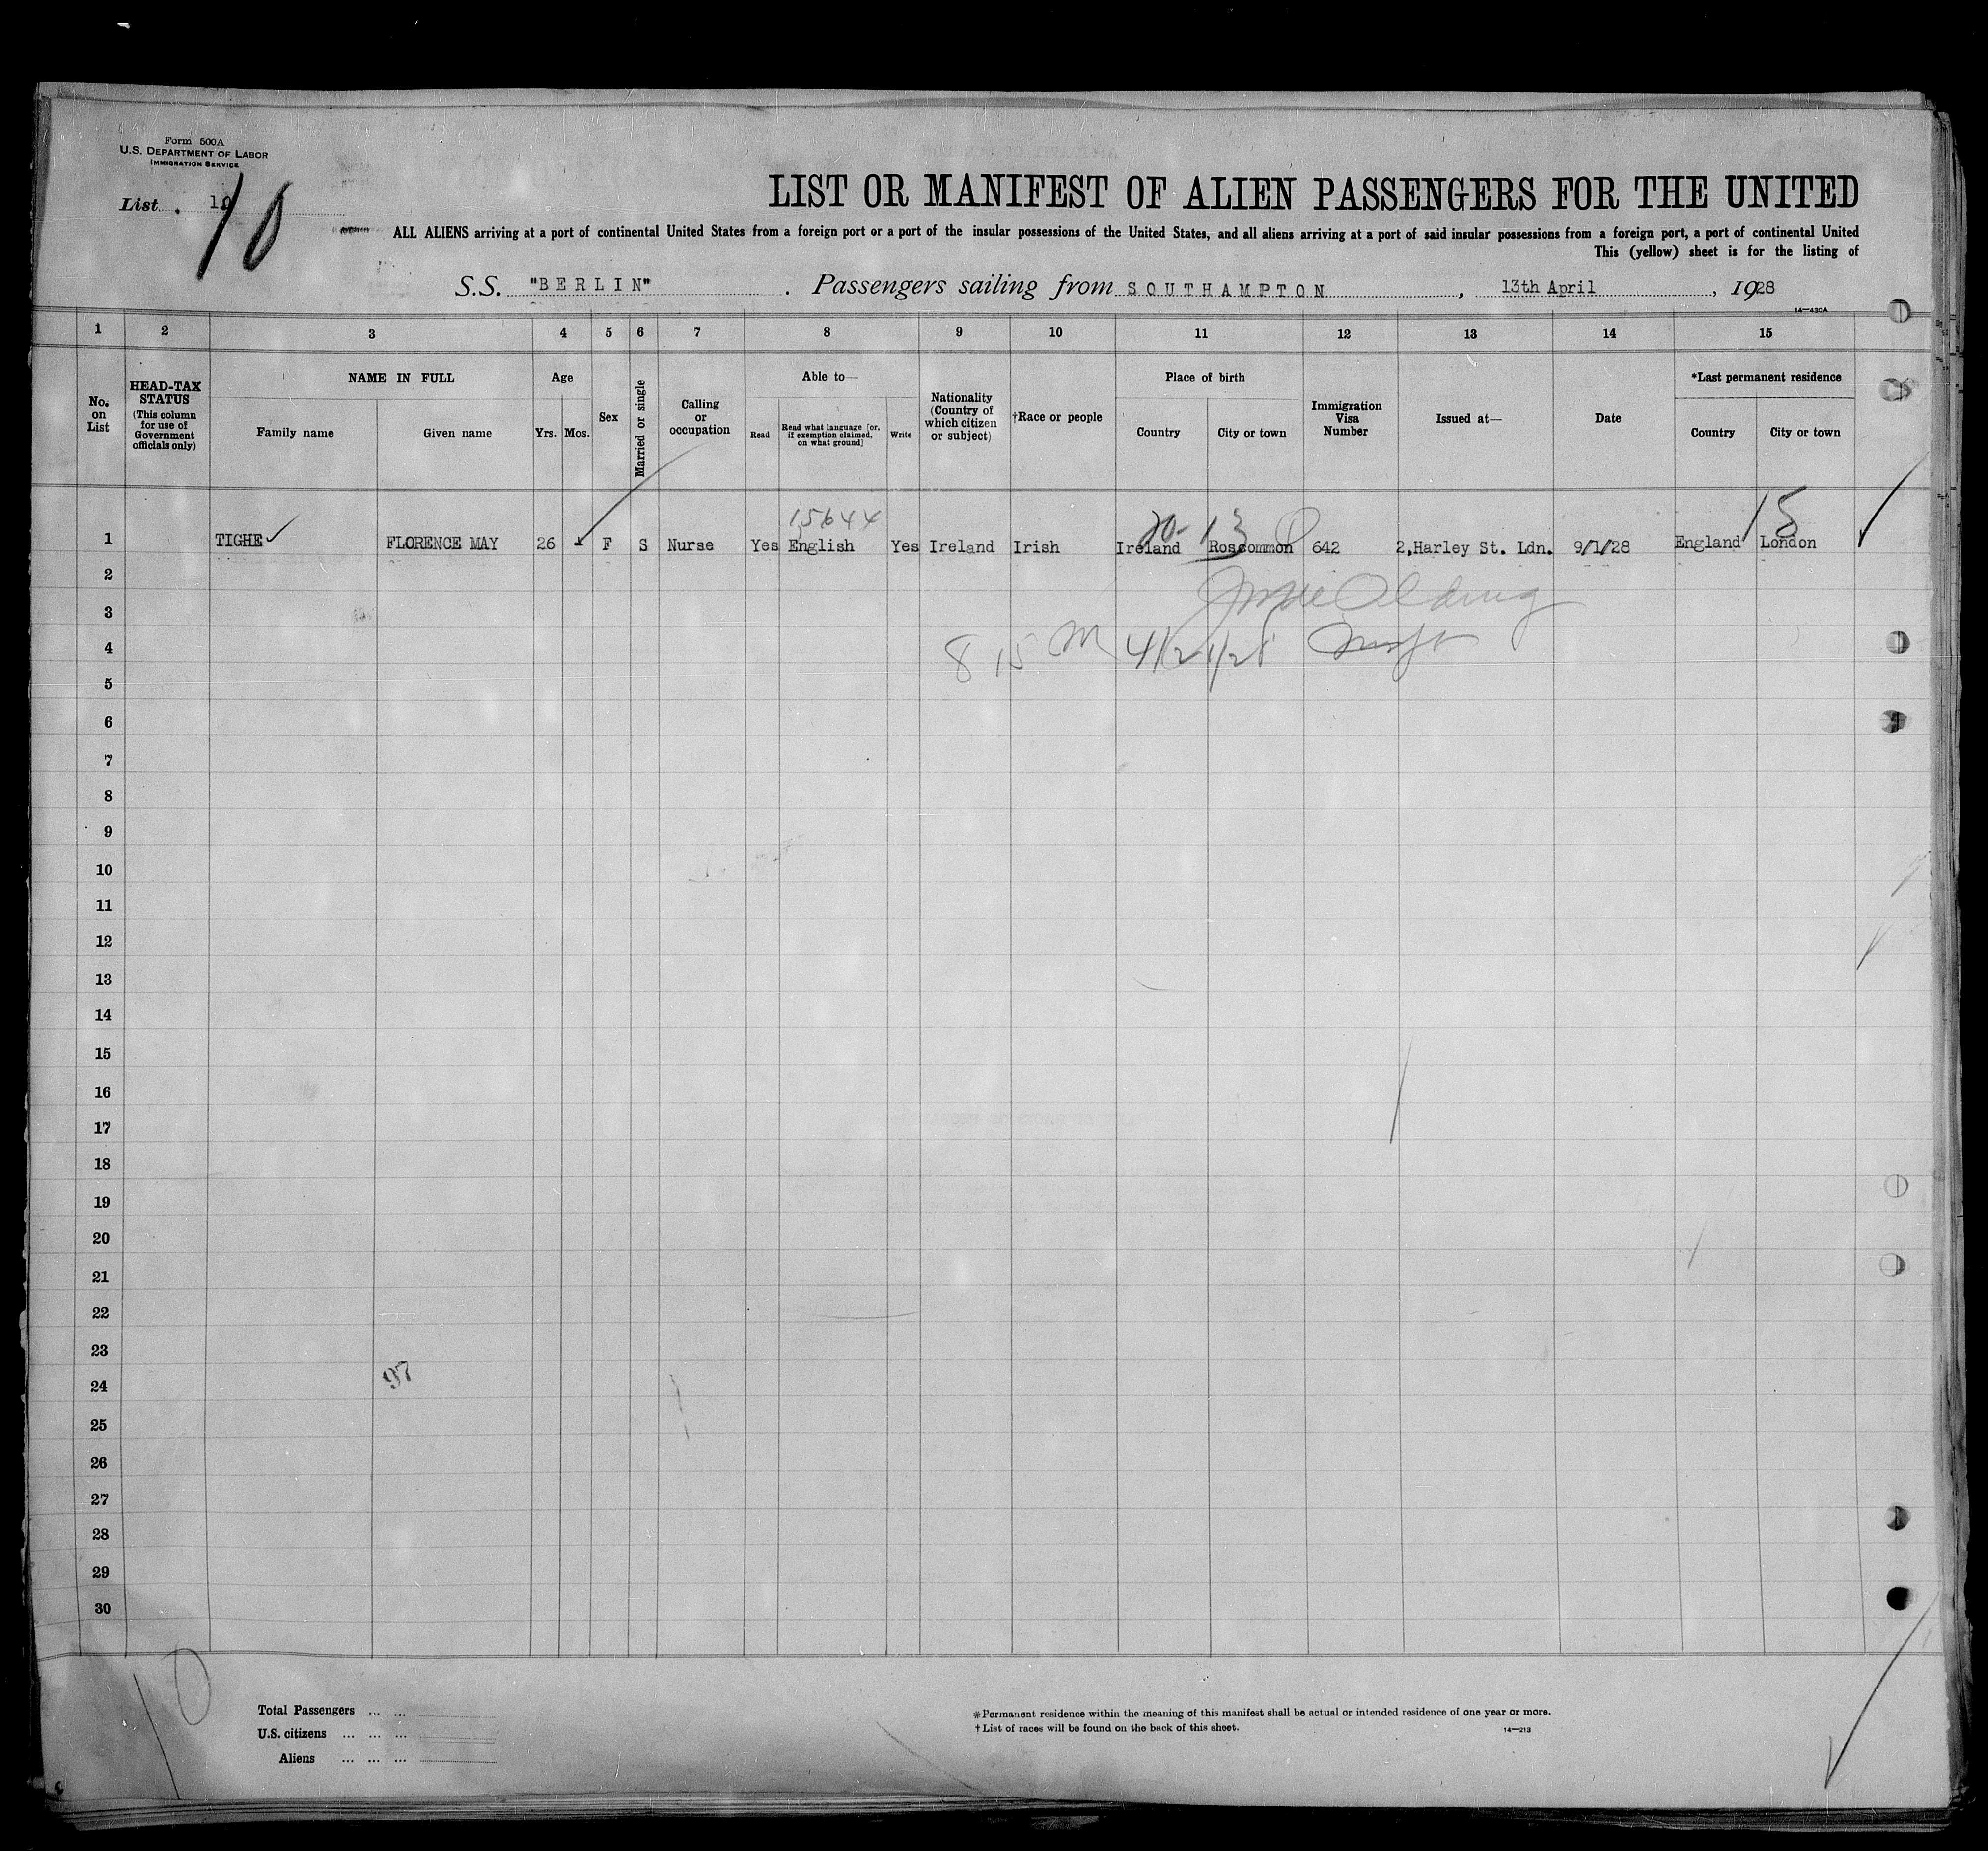 Form 500A
U.S. DEPARTMENT OF LABOR
IMMIGRATION SERVICE
List 10
10
LIST OR MANIFEST OF ALIEN PASSENGERS FOR THE UNITED
ALL ALIENS arriving at a port of continental United States from a foreign port or a port of the insular possessions of the United States, and all aliens arriving at a port of said insular possessions from a foreign port, a port of continental United
This (yellow) sheet is for the listing of
S.S. "BERLIN" Passengers sailing from SOUTHAMPTON, 13th April, 1928
14—430A
1 2 3 4 5 6 7 8 9 10 11 12 13 14 15
No. on List
HEAD-TAX STATUS (This column for use of Government officials only)
NAME IN FULL
Family name
Given name
Age
Yrs. Mos.
Sex
Married or single
Calling or occupation
Able to—
Read
Read what language [or, if exemption claimed, on what ground]
Write
Nationality (Country of which citizen or subject)
†Race or people
Place of birth
Country
City or town
Immigration Visa Number
Issued at—
Date
*Last permanent residence
Country
City or town
15644
20- 13
15
1 TIGHE FLORENCE MAY 26 - F S Nurse Yes English Yes Ireland Irish Ireland Roscommon 642 2,Harley St. Ldn. 9/1/28 England London
2
3
4 8 15 M 4/21/28
5
6
7
8
9
10
11
12
13
14
15
16
17
18
19
20
21
22
23
97
24
25
26
27
28
29
30
10
Total Passengers ... ...
U.S. citizens ... ... ...
Aliens ... ... ...
*Permanent residence within the meaning of this manifest shall be actual or intended residence of one year or more.
†List of races will be found on the back of this sheet.
14—213